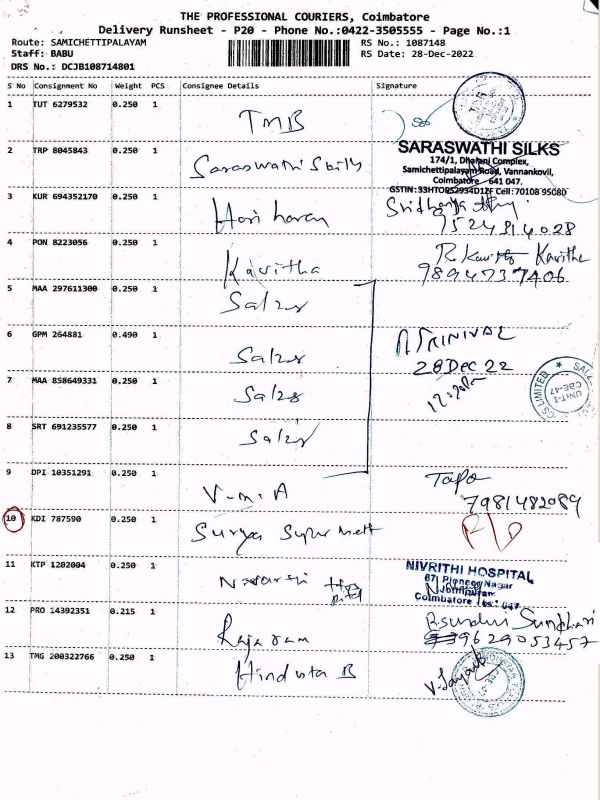 THE PROFESSIONAL COURIERS, Coimbatore
Delivery Runsheet - P20 - Phone No.:0422-3505555 - Page No.:1
Route: SAMICHETTIPALAYAM RS No.: 1087148
Staff: BABU RS Date: 28-Dec-2022
DRS No.: DCJB108714801
S No Consignment No Weight PCS Consignee Details Signature
1 TUT 6279532 0.250 1 TMB
2 TRP 8045843 0.250 1 Saraswathi
SARASWATHI SILKS
174/1, Dhalani Complex,
Samichettipalayam Road, Vannankovil,
Coimbatore - 641 047.
Cell : 70108 95080
3 KUR 694352170 0.250 1 Hari haran
7524814028
4 PON 8223056 0.250 1 Kavitha R. Kavitha
9894737406
5 MAA 297611300 0.250 1 Salzer
6 GPM 264881 0.490 1 Salzer
28 Dec 22
7 MAA 858649331 0.250 1 Salzer
UNIT-1
CBE-47
LIMITED
8 SRT 691235577 0.250 1 Salzer
9 DPI 10351291 0.250 1 V-M-A
7981482089
10 KDI 787590 0.250 1 Surya
11 KTP 1202004 0.250 1
NIVRITHI HOSPITAL
87, Pioneer Nagar
Jothipuram
Coimbatore
12 PRO 14392351 0.215 1 Rajaram
9629053457
13 TMG 200322766 0.250 1 B